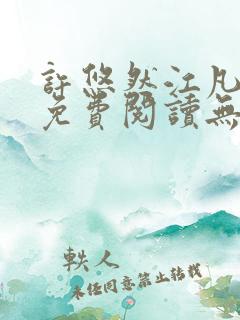 許悠然江凡
免費閱讀無
軼人
未经同意禁止转载